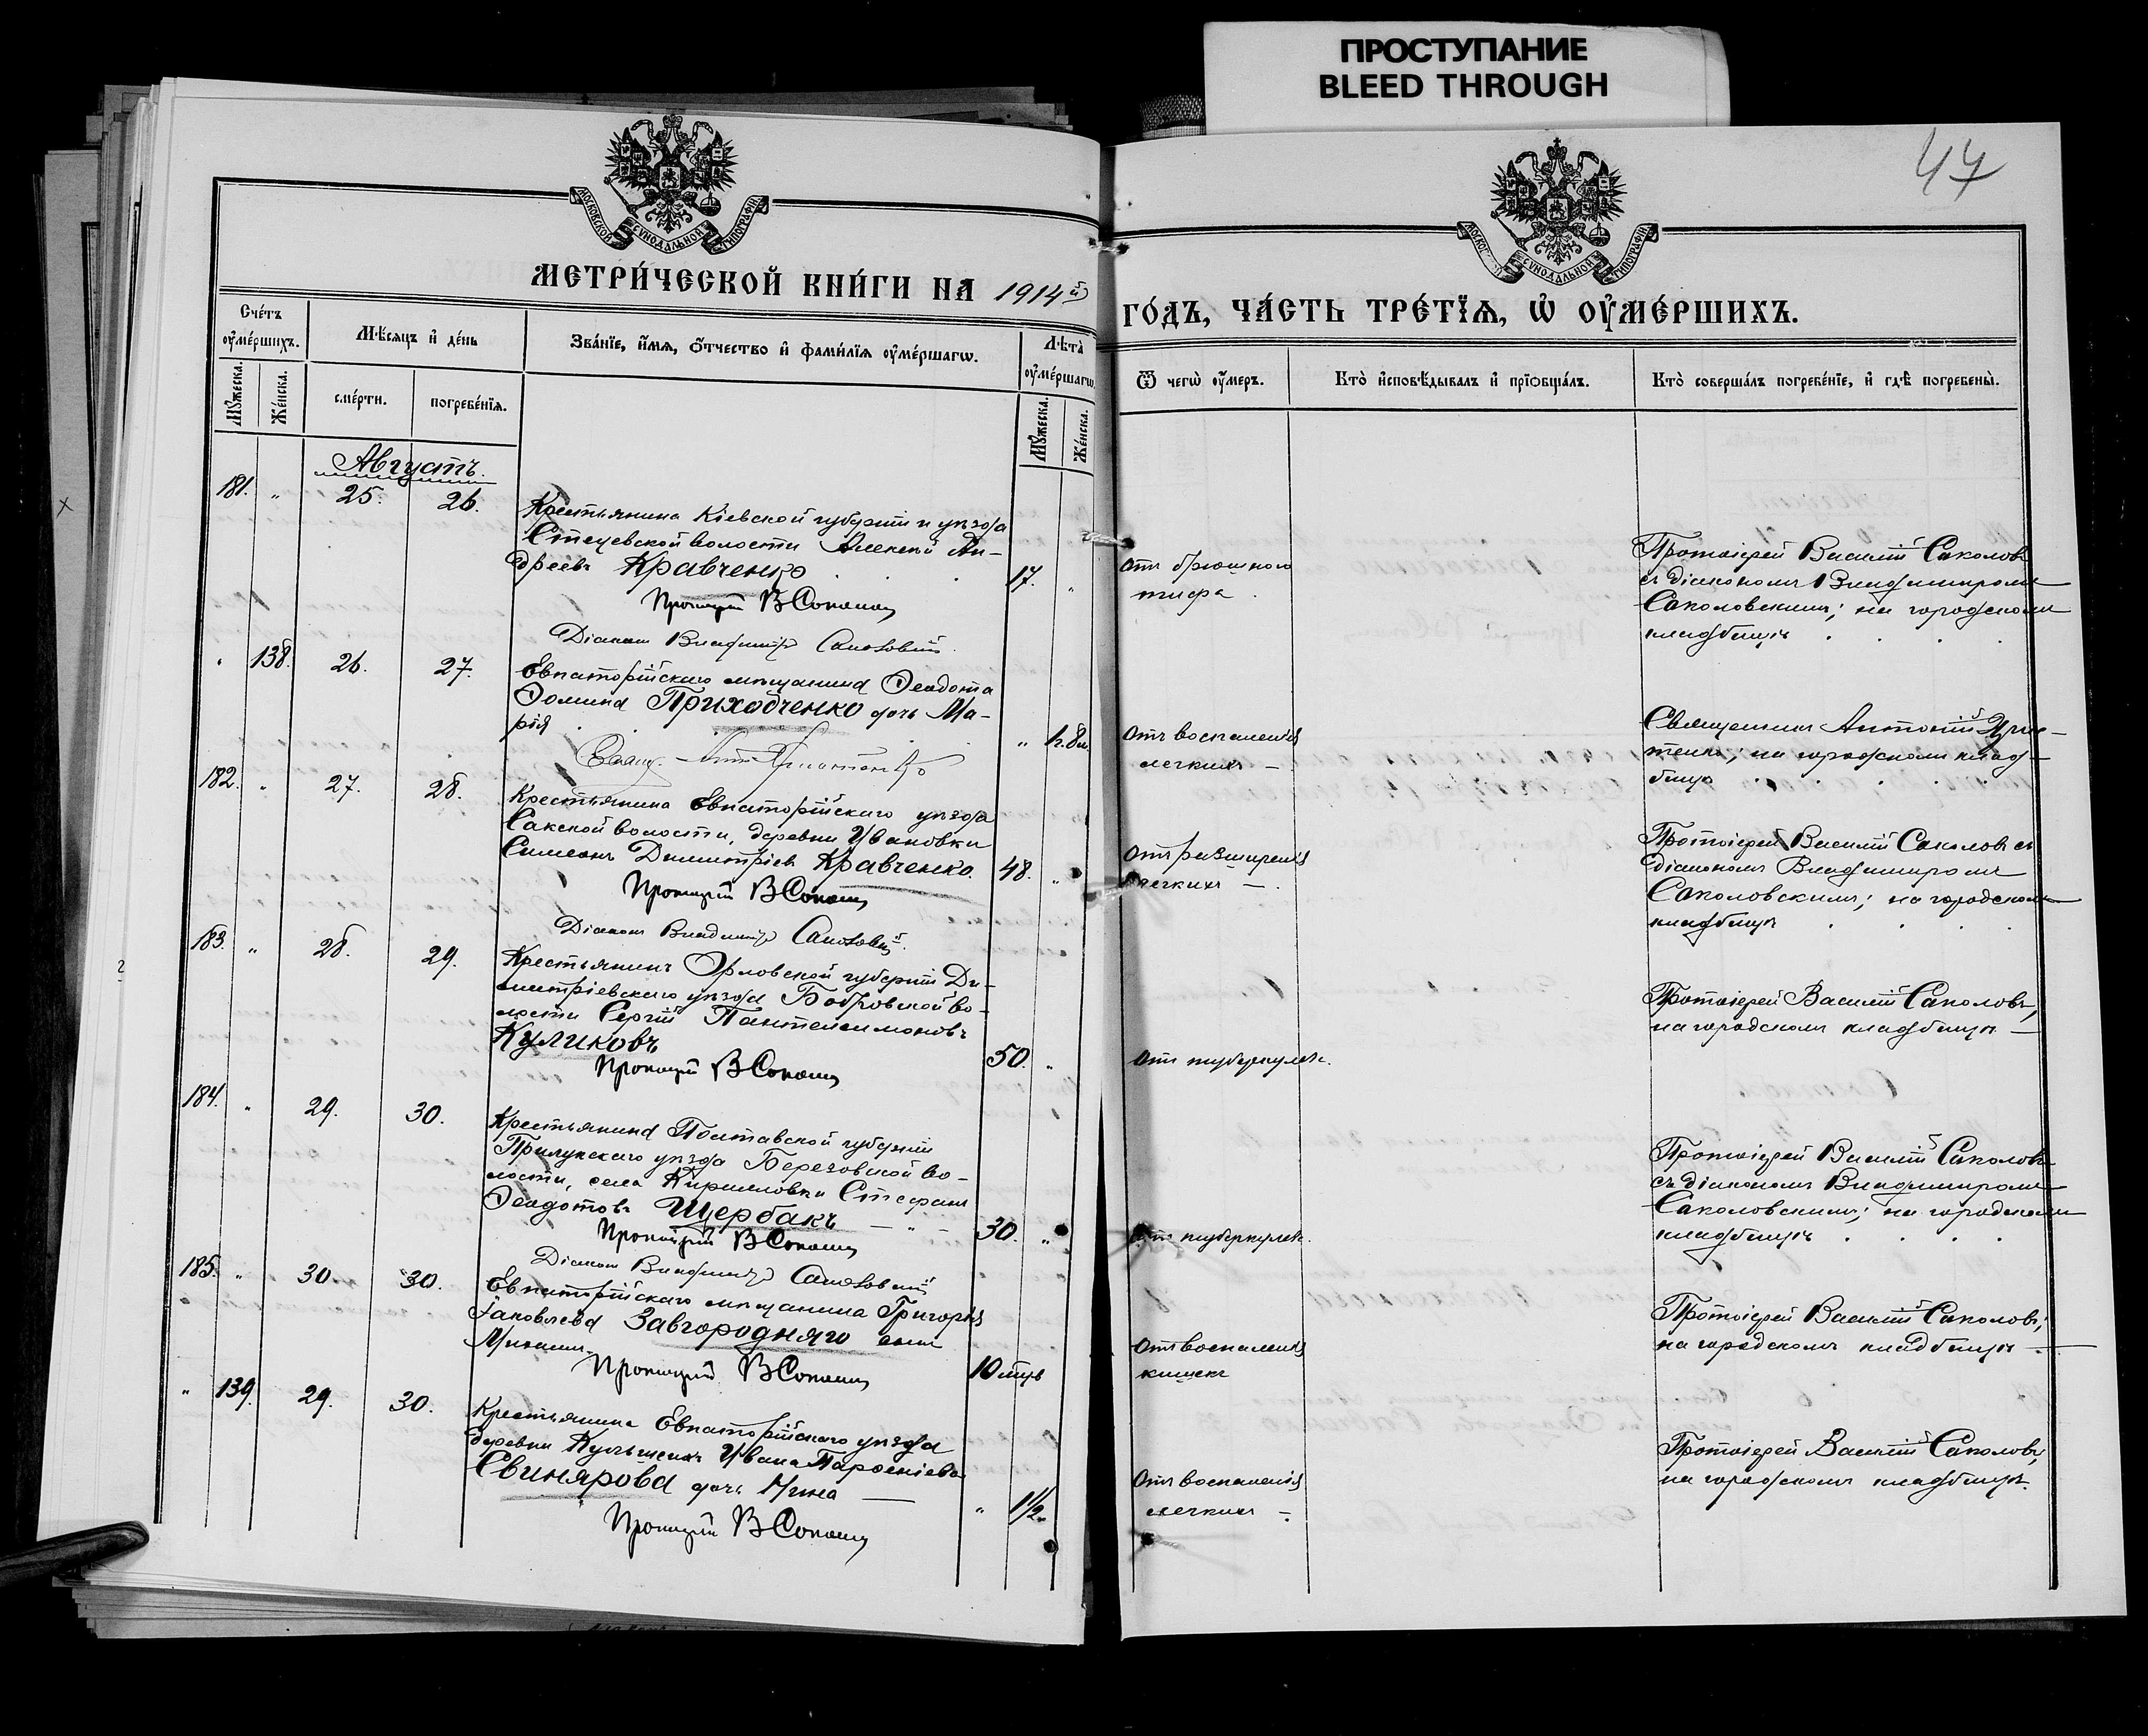 ПРОСТУПАНИЕ
BLEED THROUGH
47
МОСКОВСКОЙ СѴНОДАЛЬНОЙ ТИПОГРАФІИ
МОСКОВСКОЙ СѴНОДАЛЬНОЙ ТИПОГРАФІИ
МЕТРИ́ЧЕСКОЙ КНИ́ГИ НА 1914й
ГО́ДЪ, ЧА́СТЬ ТРЕ́ТЇѦ, Ѡ҆ ОУ҆МЕ́РШИХЪ.
Сче́тъ оу҆ме́ршихъ.
Мꙋ́жеска.
Же́нска.
Мѣ́сяцъ и҆ де́нь
сме́рти.
погребе́нїѧ.
Зва́нїе, и҆́мѧ, ѻ҆́тчество и҆ фами́лїѧ оу҆ме́ршагѡ.
Лѣ́та оу҆ме́ршагѡ.
Мꙋ́жеска.
Же́нска.
Ѿ чегѡ̀ оу҆́меръ.
Кто̀ и҆сповѣ́дывалъ и҆ прїѻбща́лъ.
Кто̀ соверша́лъ погребе́нїе, и҆ гдѣ̀ погребены̀.
Августъ.
181. „ 25. 26.
Крестьянина Кіевской губерніи и уѣзда
волости Алексѣй Ан-
дреевъ Кравченко 17. „
Протоіерей В Соколовъ
Діаконъ Владиміръ Саколовскій.
Отъ брюшного
тифа.
Протоіерей Василій Саколовъ
съ діакономъ Владиміромъ
Саколовскимъ; на городскомъ
кладбищѣ
„ 138. 26. 27.
Евпаторійскаго мѣщанина Ѳеодота
Ѳомина Приходченко дочь Ма-
рія „
Свящ.
Отъ воспаленія
легкихъ —
Священникъ Антоній
на городскомъ клад-
бищѣ
182. „ 27. 28.
Крестьянина Евпаторійскаго уѣзда
Сакской волости, деревни Ивановки
Симеонъ Димитріевъ Кравченко. 48. „
Протоіерей В Соколовъ
Діаконъ Владиміръ Саколовскій.
Отъ расширенія
легкихъ —.
Протоіерей Василій Саколовъ съ
діакономъ Владиміромъ
Саколовскимъ; на городскомъ
кладбищѣ
183. „ 28. 29.
Крестьянинъ Орловской губерніи Ди-
митріевскаго уѣзда Бобровской во-
лости Сергій Пантелеимоновъ
Куликовъ 50. „
Протоіерей В Соколовъ
Отъ туберкулез.
Протоіерей Василій Саколовъ,
на городскомъ кладбищѣ —
184. „ 29. 30.
Крестьянина Полтавской губерніи
Прилукскаго уѣзда Березовской во-
лости, села Кирилловки Стефанъ
Ѳеодотовъ Щербакъ — „ — 30. „
Протоіерей В Соколовъ
Діаконъ Владиміръ Саколовскій
Отъ туберкулез.
Протоіерей Василій Саколовъ
съ діакономъ Владиміромъ
Саколовскимъ; на городскомъ
кладбищѣ
185. „ 30. 30.
Евпаторійскаго мѣщанина Григорія
Іаковлева Завгородняго сынъ
Михаилъ. 10 мцв
Протоіерей В Соколовъ
Отъ воспаленія
кишекъ
Протоіерей Василій Саколовъ;
на городскомъ кладбищѣ —
„ 139. 29. 30.
Крестьянина Евпаторійскаго уѣзда
деревни Ивана Парѳеніева
Свинярова дочь Нина —
„ 1½
Протоіерей В Соколовъ
Отъ воспаленія
легкихъ —.
Протоіерей Василій Саколовъ,
на городскомъ кладбищѣ.